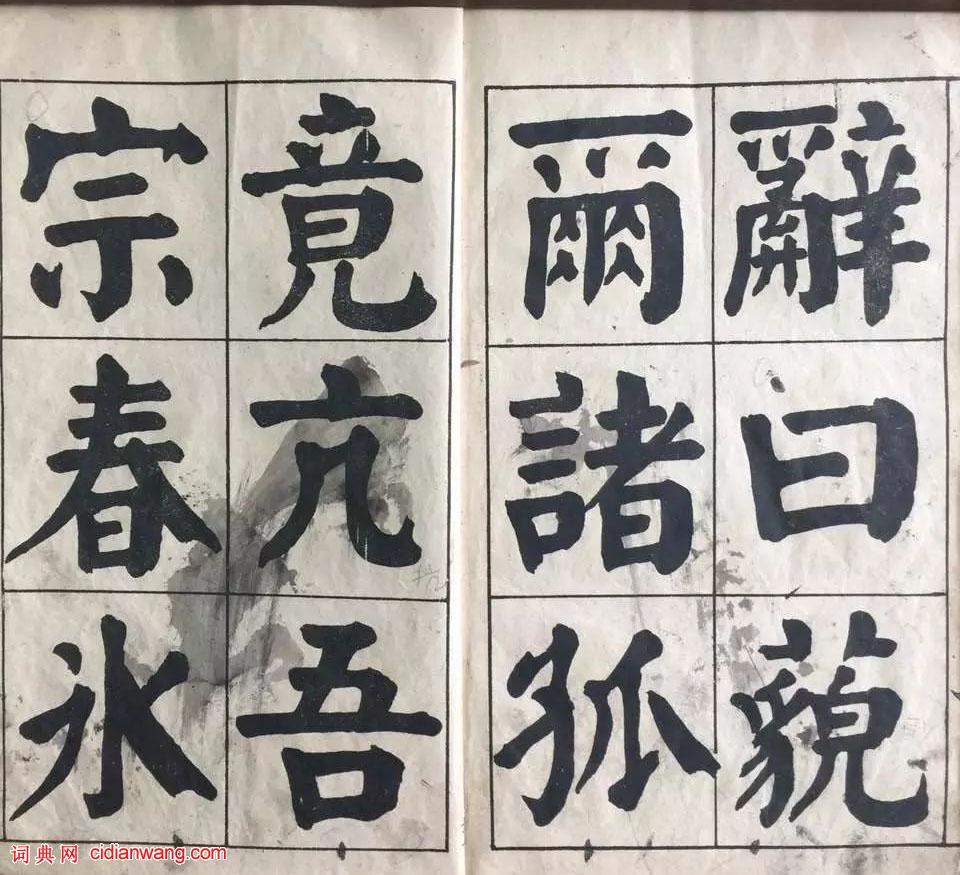 辭曰藐
爾諸孤
竟亢吾
宗春氷
词典网 cidianwang.com